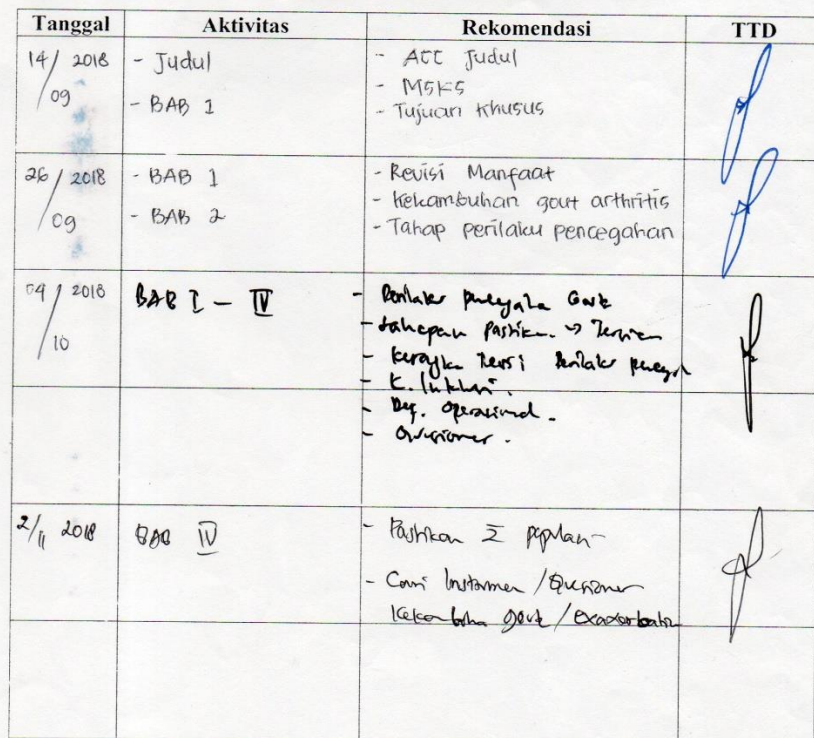 Tanggal Aktivitas Rekomendasi TTD
14/09 2018 - Judul - ACC Judul
- BAB 1 - MSKS
- Tujuan Khusus
26/09 2018 - BAB 1 - Revisi Manfaat
- BAB 2 - Kekambuhan gout arthritis
- Tahap perilaku pencegahan
04/10 2018 BAB I - IV - Perilaku Gout
- tahapan
- Kerangka Teori Perilaku
- K. Inklusi.
- Def. Operasional.
- Quisioner.
2/11 2018 BAB IV - Pastikan Σ populasi
- Cari Instrumen / Quisioner
Kekambuhan gout /